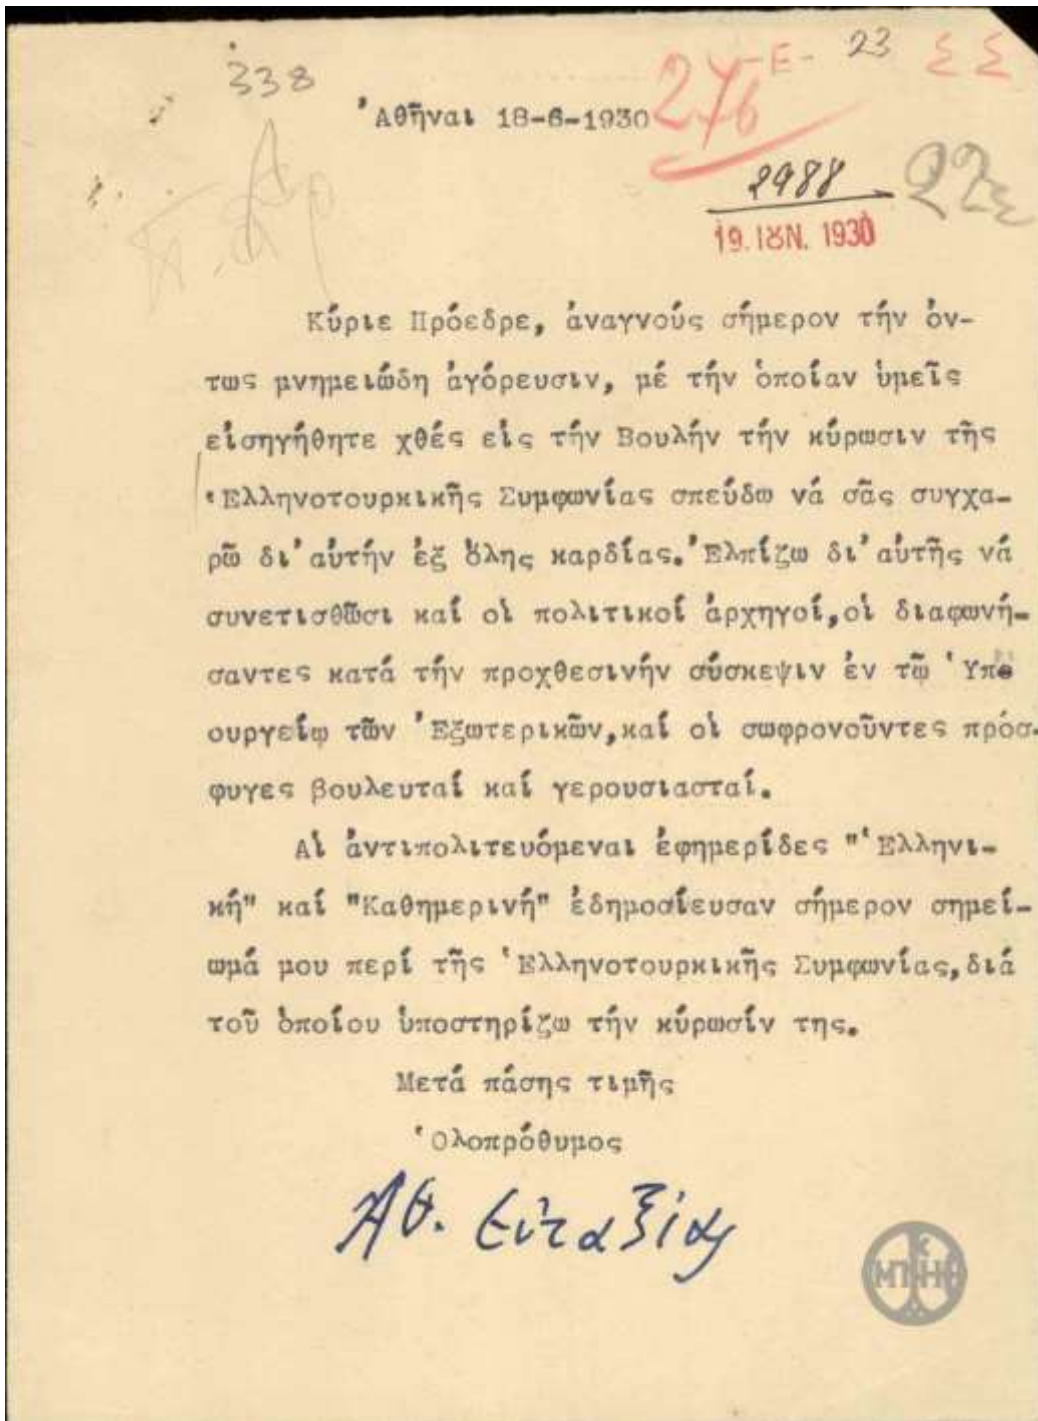 338
-Ε- 23 Σ Σ
276
Ἀθῆναι 18-6-1930
2988
22ε
19. ΙȣΝ. 1930
Κύριε Πρόεδρε, ἀναγνούς σήμερον τήν ὄν-
τως μνημειώδη ἀγόρευσιν, μέ τήν ὁποίαν ὑμεῖς
εἰσηγήθητε χθές εἰς τήν Βουλήν τήν κύρωσιν τῆς
Ἑλληνοτουρκικῆς Συμφωνίας σπεύδω νά σᾶς συγχα-
ρῶ δι'αὐτήν ἐξ ὅλης καρδίας. Ἐλπίζω δι'αὐτῆς νά
συνετισθῶσι καί οἱ πολιτικοί ἀρχηγοί,οἱ διαφωνή-
σαντες κατά τήν προχθεσινήν σύσκεψιν ἐν τῷ Ὑπο
ουργείῳ τῶν Ἐξωτερικῶν,καί οἱ σωφρονοῦντες πρόσ-
φυγες βουλευταί καί γερουσιασταί.
Αἱ ἀντιπολιτευόμεναι ἐφημερίδες "Ἑλληνι-
κή" καί "Καθημερινή" ἐδημοσίευσαν σήμερον σημεί-
ωμά μου περί τῆς Ἑλληνοτουρκικῆς Συμφωνίας,διά
τοῦ ὁποίου ὑποστηρίζω τήν κύρωσίν της.
Μετά πάσης τιμῆς
Ὁλοπρόθυμος
Ἀθ. Εὐταξίας